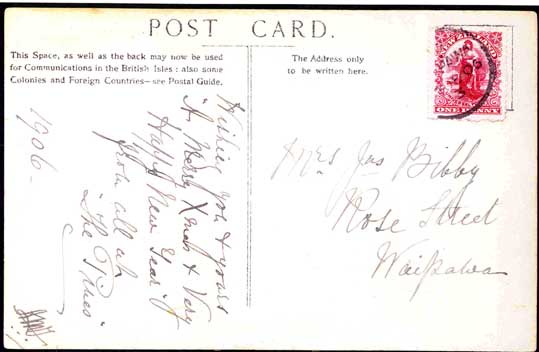 POST CARD.
This Space, as well as the back may now be used
for Communications in the British Isles: also some
Colonies and Foreign Countries—see Postal Guide.
The Address only
to be written here.
NEW ZEALAND
ONE PENNY
1906
Wishing you & yours
"A Merry Xmas & Very
Happy New Year"
from all at
"The Pines"
Mrs Jas Bibby
Rose Street
Waipawa